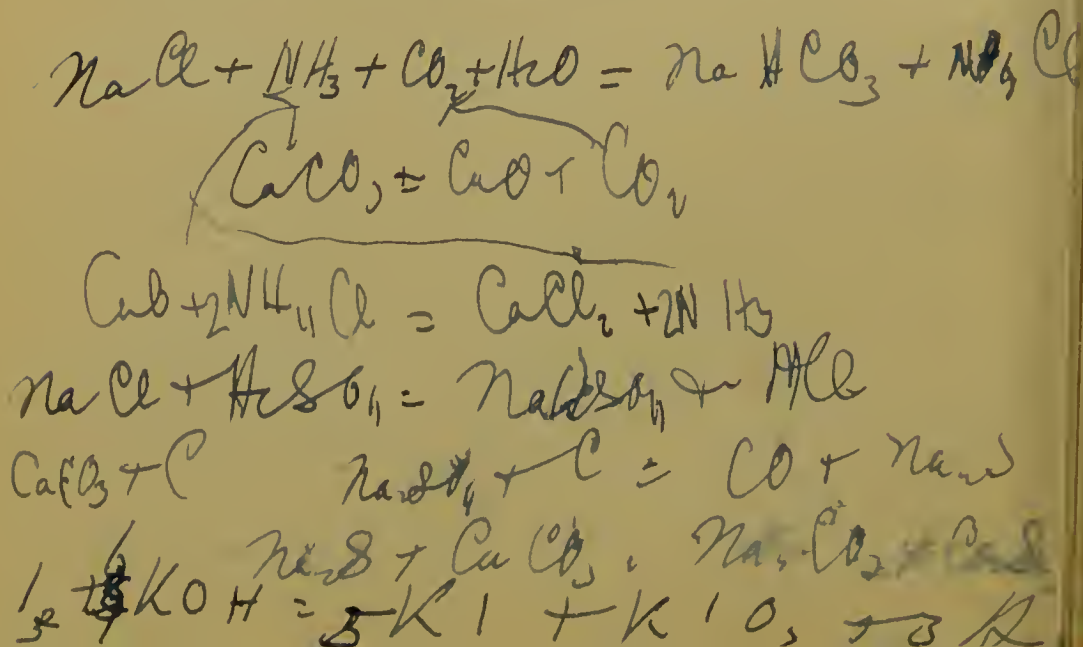 NaCl + NH3 + CO2 + H2O = NaHCO3 + NH4Cl
CaCO3 = CaO + CO2
CaO + 2NH4Cl = CaCl2 + 2NH3
NaCl + H2SO4 = + HCl
CaCO3 + C Na2SO4 + C = CO + Na2S
Na2S + CaCO3 . Na2CO3 + CaS
KOH = 5KI + KIO3 + 3